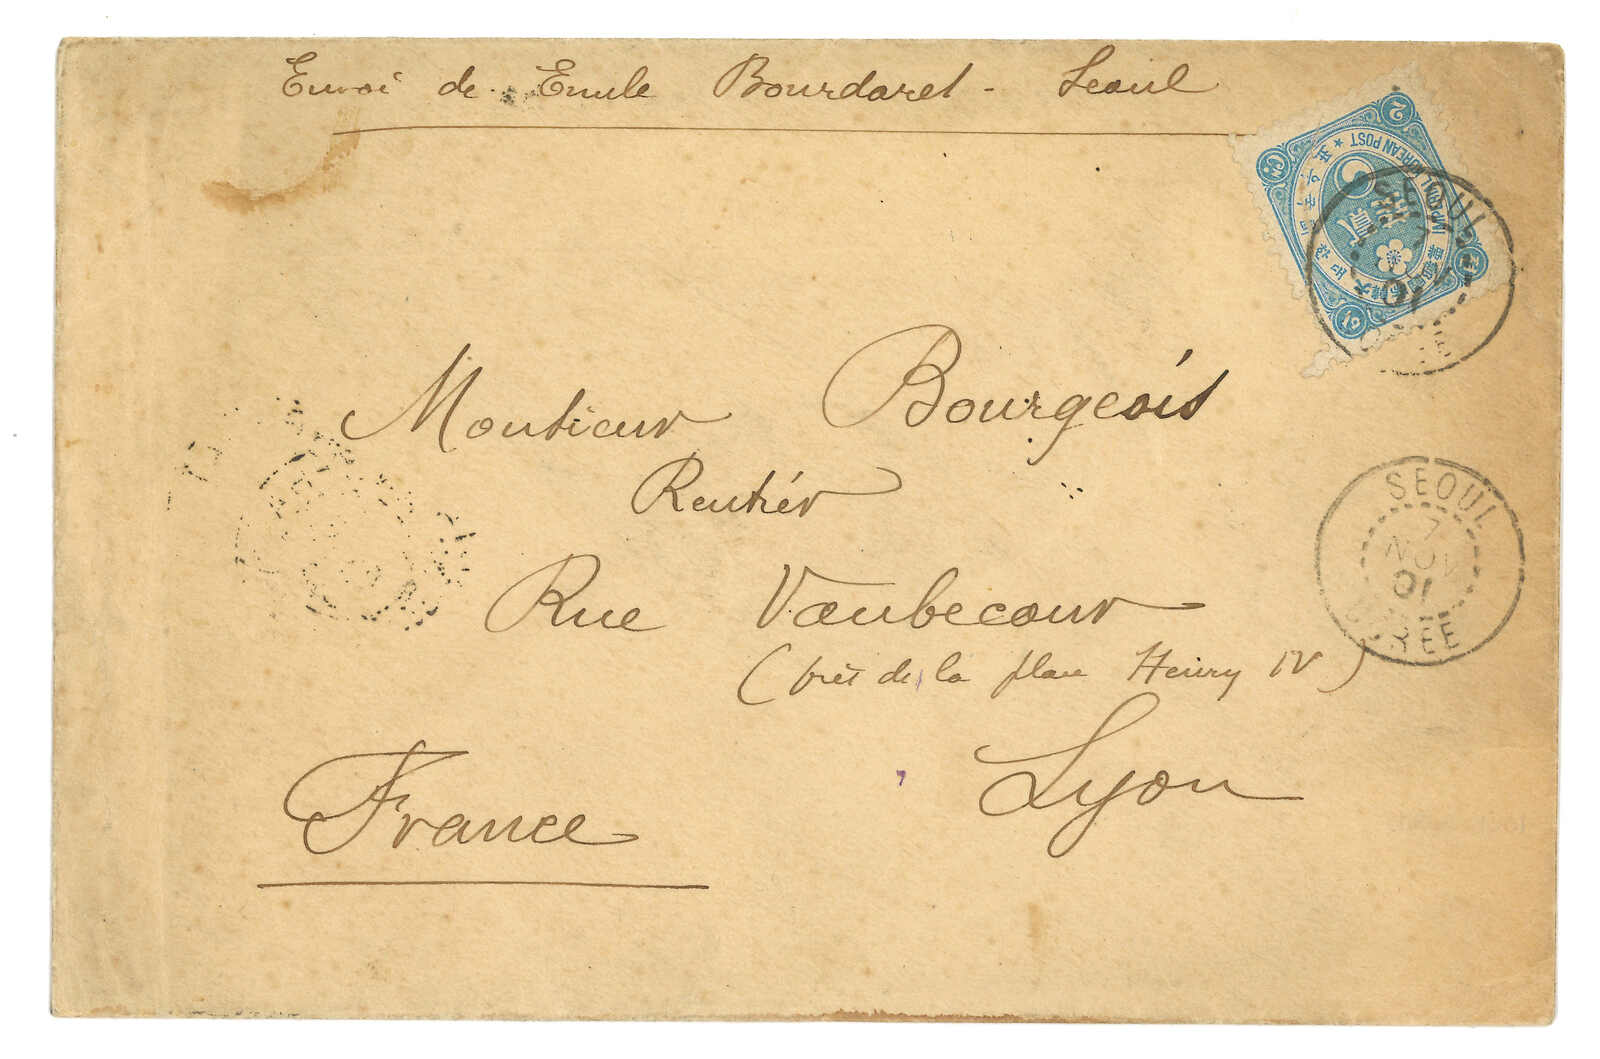 Envoi de Emile Bourdaret - Seoul
2
IMPERIAL KOREAN POST
SEOUL
01
Monsieur Bourgeois
Rentier
Rue Vaubecour
(près de la place Henry IV)
Lyon
France
SEOUL
7
NOV
01
COREE